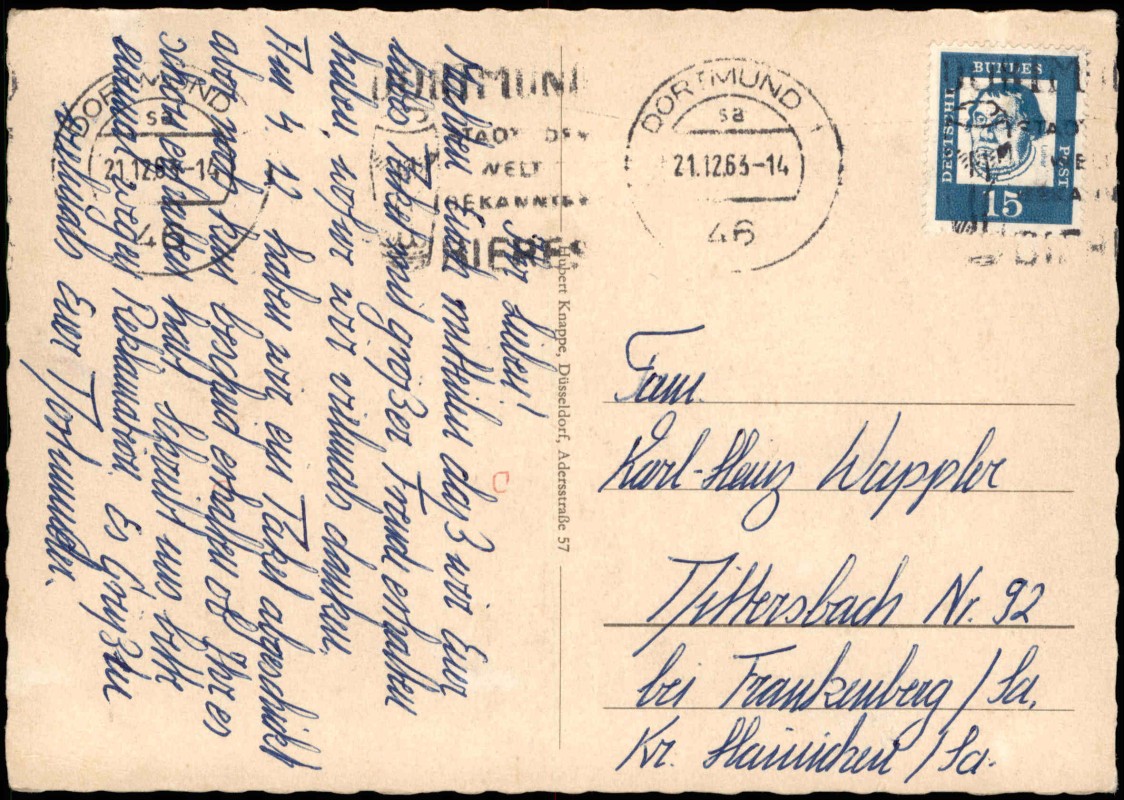 Ihr Lieben!
Können Euch mitteilen daß wir Euer
liebes Paket mit großer Freud erhalten
haben, wofür wir vielmals danken.
Am 4. 12 haben wir ein Paket abgeschickt
aber noch kein bescheid erhalten ob Ihr es
schon erhalten habt schreibt uns bitte
einmal wegen Reklamation. Es Grüßen
vielmals Eure Dortmunder.
Hubert Knappe, Düsseldorf, Adersstraße 57
DORTMUND
sa
21.12.63-14
46
DORTMUND
STADT DES
WELT
BEKANNTEN
BIERES
DORTMUND 1
sa
21.12.63-14
46
DEUTSCHE
BUNDES
POST
Luther
15
Fam.
Karl-Heinz Wappler
Dittersbach Nr. 92
bei Frankenberg /Sa.
Kr. Hainichen /Sa.